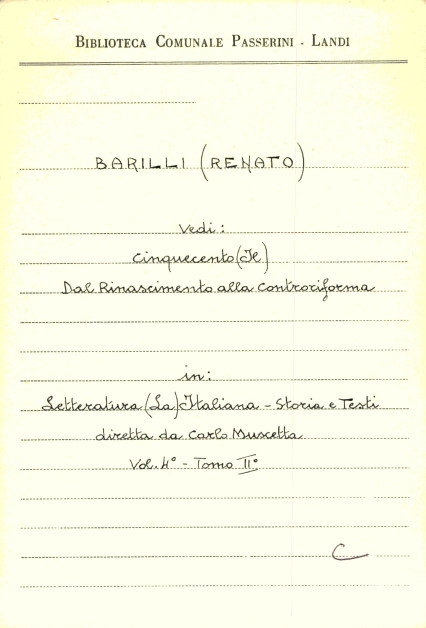 BIBLIOTECA COMUNALE PASSERINI - LANDI
BARILLI (RENATO)
Vedi:
Cinquecento (Il)
Dal Rinascimento alla Controriforma
in:
Letteratura (La) Italiana - Storia e Testi
diretta da Carlo Muscetta
Vol. 4° - Tomo II°
C